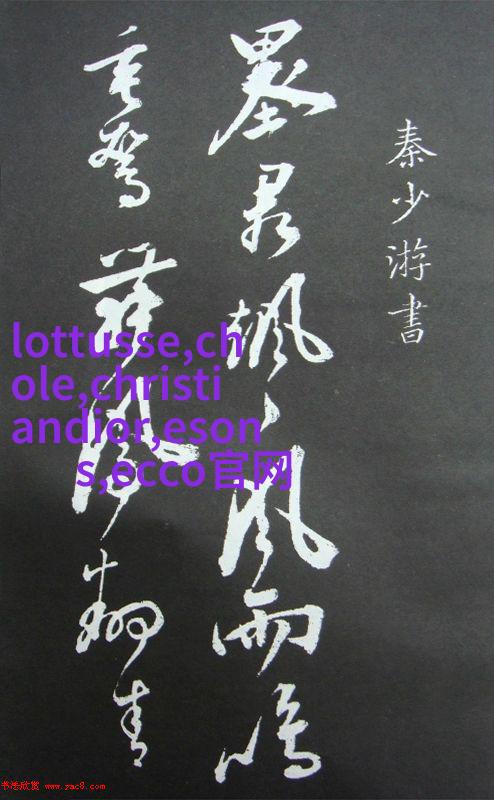 秦少游書
墨君颯〻風雨鳴
舞鳳翔青
lottusse,ch
ole,christi
andior,eson
s,ecco官网
书法欣赏 www.yac8.com